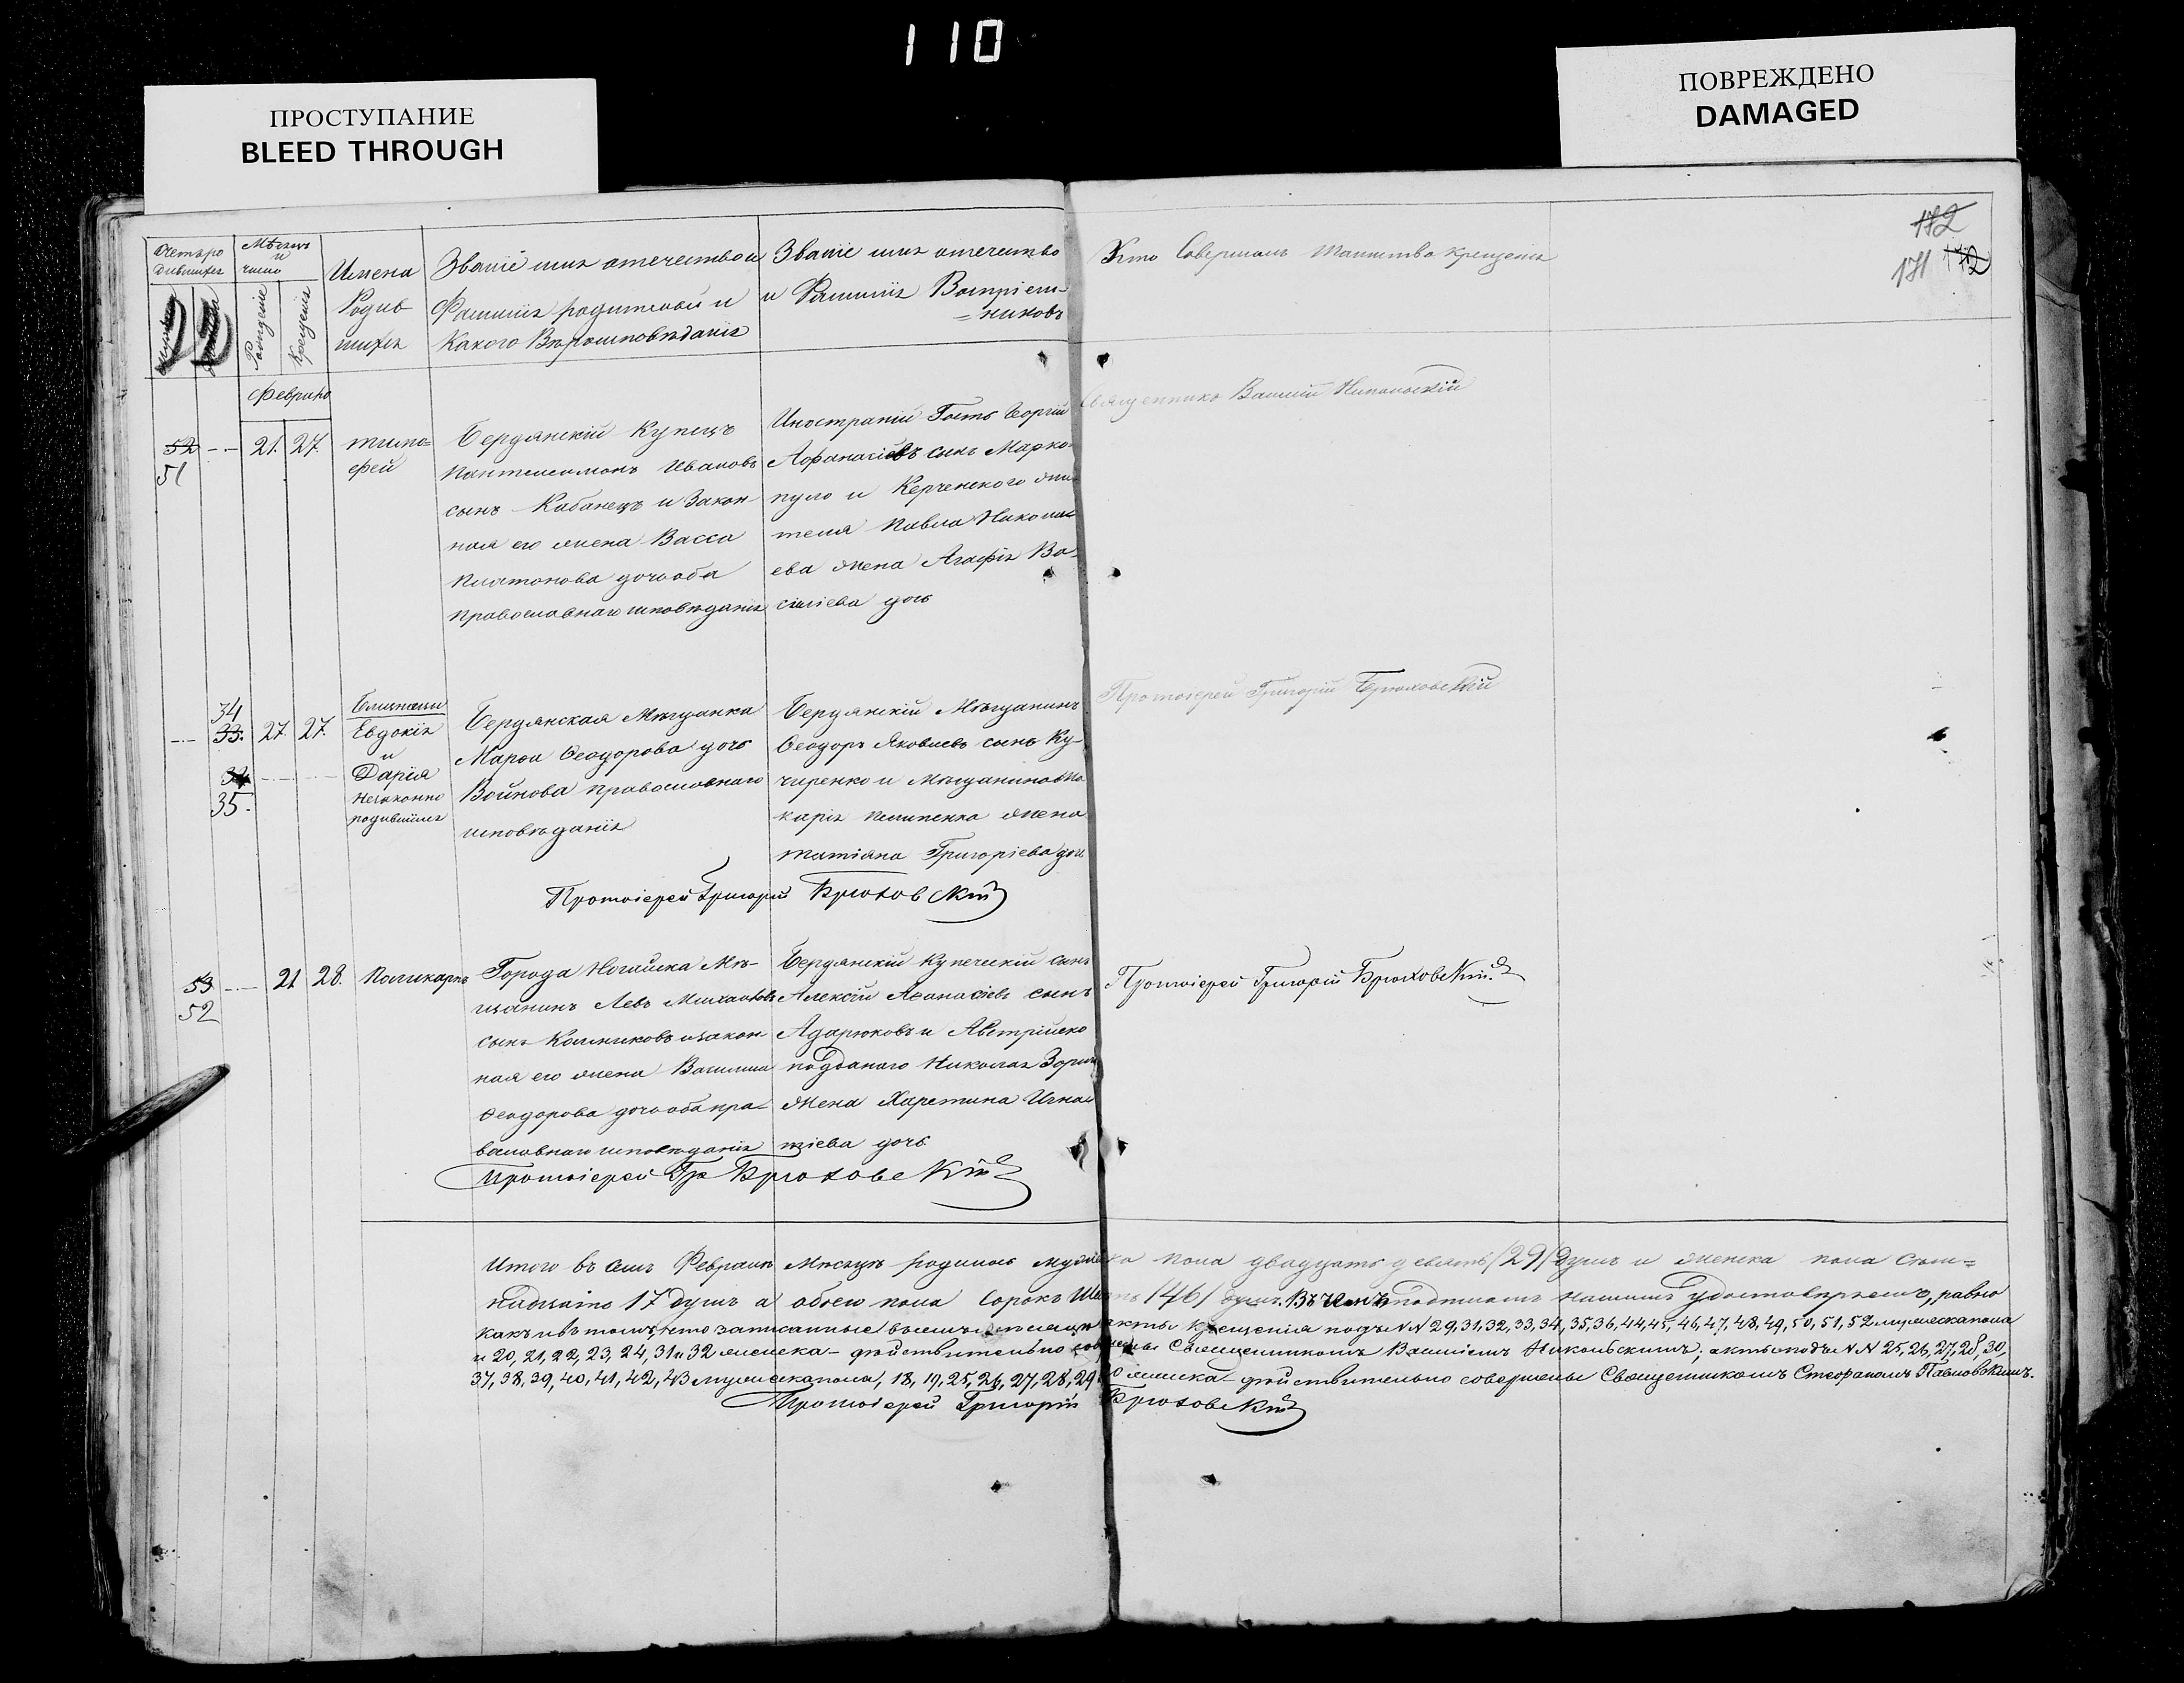 110
ПРОСТУПАНИЕ
BLEED THROUGH
ПОВРЕЖДЕНО
DAMAGED
172
171 172
Мѣсяцъ
и
число
Рожденіе
Крещенія
Имена
Родив
шихся
Званіе имя отечество и
Фамилія родителей и
Какого Вѣроисповѣданія
Званіе имя отечество
и Фамилія Воспріем-
=никовъ
Кто Совершалъ Таинство Крещенія
52
51
21. 27.
Тимо=
фей
Бердянскій Купецъ
Пантелеимонъ Ивановъ
сынъ Кабанецъ и Закон
ная его жена Васса
Платонова дочь оба
православнаго исповѣданія
Гость Георгій
Афанасіевъ сынъ Марко-
пуло и Керченского жи-
теля Павла Никола
ева жена Агафія Ва-
силіева дочь
Священникъ Василій Никольскій
34
33.
35.
27. 27.
Близнецы
Евдокія
и
Дарія
Незаконно
родившіяся
Бердянская Мѣщанка
Феодорова дочь
Войнова православнаго
исповѣданія
Бердянскій Мѣщанинъ
Феодоръ Яковлевъ сынъ Ку-
чиренко и Мѣщанина Ма
карія жена
Татіана Григоріева дочь
Протоіерей Григорій Брюховскій
Протоіерей Григорій Брюховскій
53
52
21 28.
Поликарпъ
Города Ногайска Мѣ-
щанинъ Левъ Михайловъ
сынъ и закон
ная его жена Василиса
Феодорова дочь оба пра-
вославнаго исповѣданія
Бердянскій Купеческій сынъ
Алексій Афанасіевъ сынъ
Адарюковъ и Австрійско
подданаго Николая
жена Харетина Игна
тіева дочь
Протоіерей Григорій Брюховскій.
Протоіерей Гр Брюховскій
Итого въ семъ Февралѣ Мѣсяцѣ родилось мужеска пола двадцать девять /29/ душъ и женска пола семь=
надцать 17 душъ а обоего пола Сорокъ Шесть /46/ душъ. Въ чемъ подписомъ нашимъ удостовѣряемъ, равно
какъ и въ томъ, что записанные въ семъ мѣсяцѣ акты крещенія подъ NN 29, 31, 32, 33, 34, 35, 36, 44, 45, 46, 47, 48, 49, 50, 51, 52 мужеска пола
и 20, 21, 22, 23, 24, 31 и 32 женска – дѣйствительно совершены Священникомъ Василіемъ Никольскимъ; акты подъ NN 25, 26, 27, 28, 30,
37, 38, 39, 40, 41, 42, 43 мужеска пола, 18, 19, 25, 26, 27, 28, 29 30 женска – дѣйствительно совершены Священникомъ Стефаномъ Павловскимъ.
Протоіерей Григорій Брюховскій